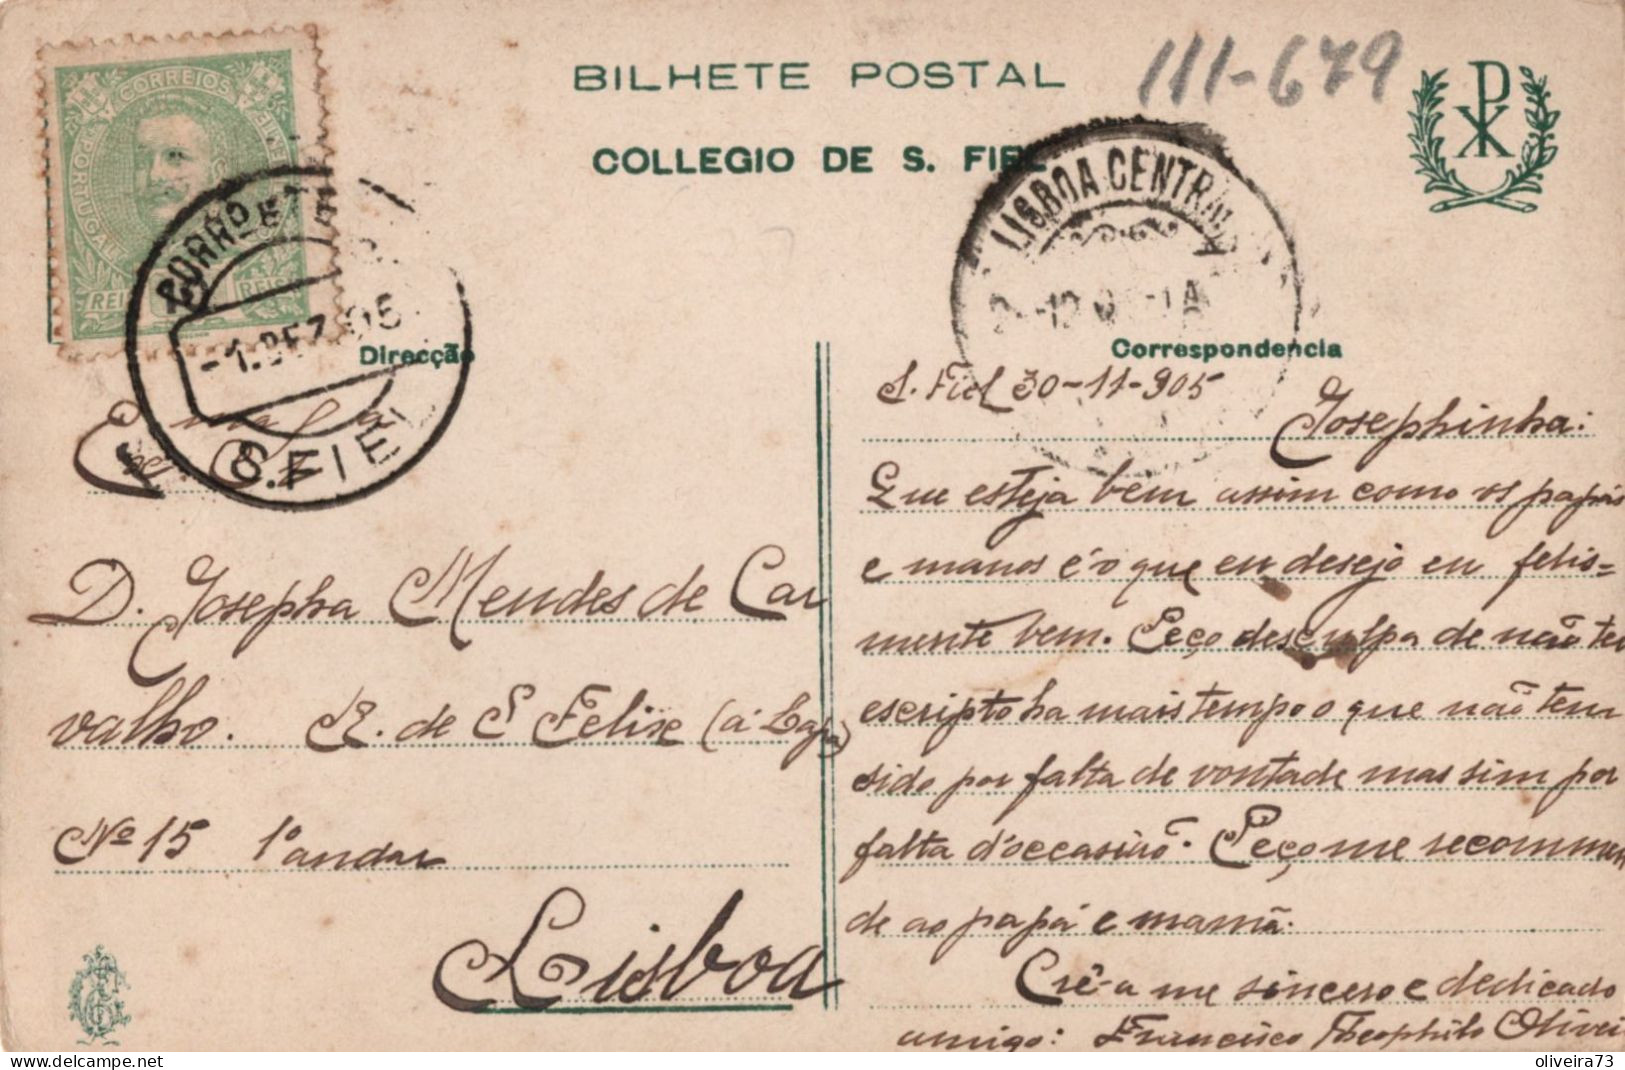 BILHETE POSTAL
111-679
COLLEGIO DE S. FIEL
CORREIOS
PORTUGAL
REIS REIS
CORREIO E T
-1.DEZ.05
S. FIEL
LISBOA CENTRAL
Direcção
D. Josepha Mendes de Car
valho. R. de S Felix (á Lapa)
Nº 15 1º andar
Lisboa
Correspondencia
S. Fiel 30-11-905
Josephinha:
Que esteja bem assim como os papás
e manos é o que eu desejo eu felis=
mente bem. Peço desculpa de não ter
escripto ha mais tempo o que não tem
sido por falta de vontade mas sim por
falta d'occasião. Peço me recommen
de ao papá e mamã.
Crê-a me sincero e dedicado
amigo: Francisco Theophilo Olivei
oliveira73